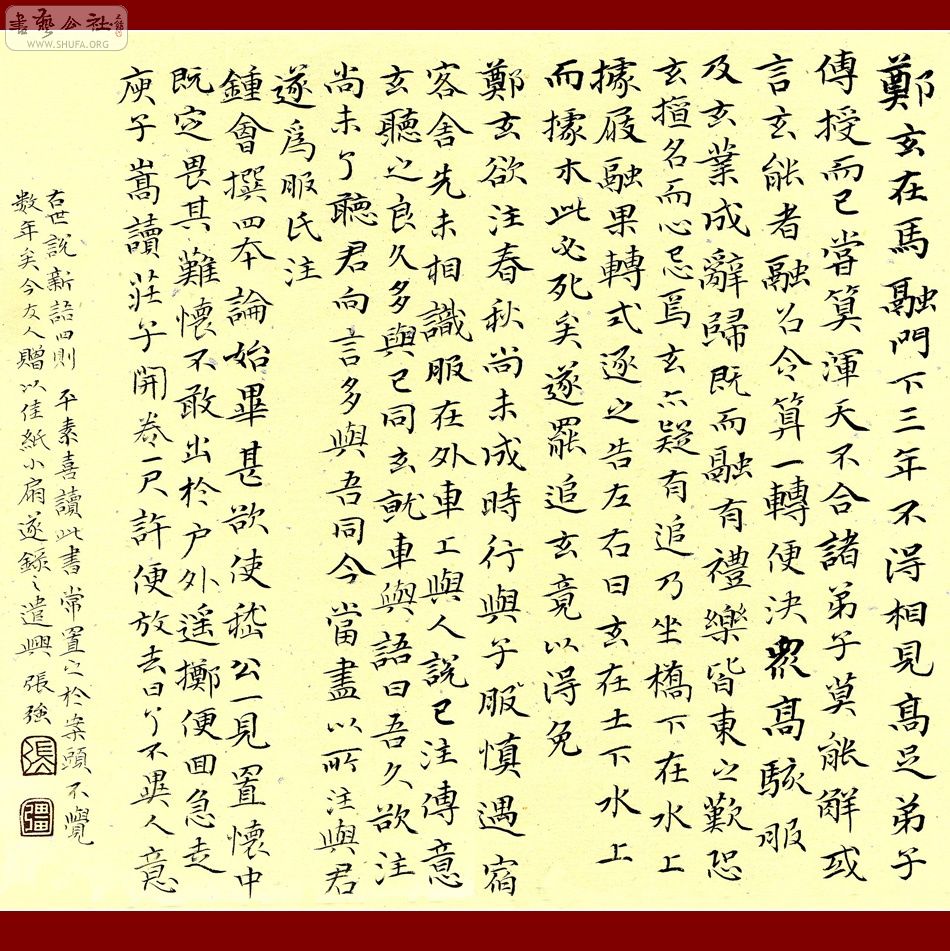 鄭玄在馬融門下三年不得相見高足弟子
傳授而已嘗算渾天不合諸弟子莫能解或
言玄能者融召令算一轉便決眾高駭服
及玄業成辭歸既而融有禮樂皆東之歎恐
玄擅名而心忌焉玄亦疑有追乃坐橋下在水上
據屐融果轉式逐之告左右曰玄在土下水上
而據木此必死矣遂罷追玄竟以得免
鄭玄欲注春秋尚未成時行與子服慎遇宿
客舍先未相識服在外車上與人說已注傳意
玄聽之良久多與已同玄就車與語曰吾久欲注
尚未了聽君向言多與吾同今當盡以所注與君
遂爲服氏注
鍾會撰四本論始畢甚欲使嵇公一見置懷中
既定畏其難懷不敢出於户外遥擲便回急走
庾子嵩讀莊子開卷一尺許便放去曰了不異人意
右世說新語四則 平素喜讀此書常置之於案頭不覺
数年矣今友人贈以佳紙小扇遂錄之遣興張強
張
彊
書藝公社
WWW.SHUFA.ORG